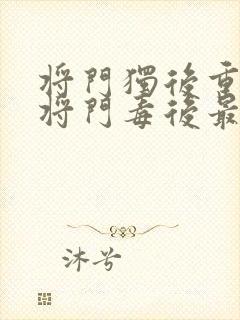 將門獨後重
將門毒後最
沐兮